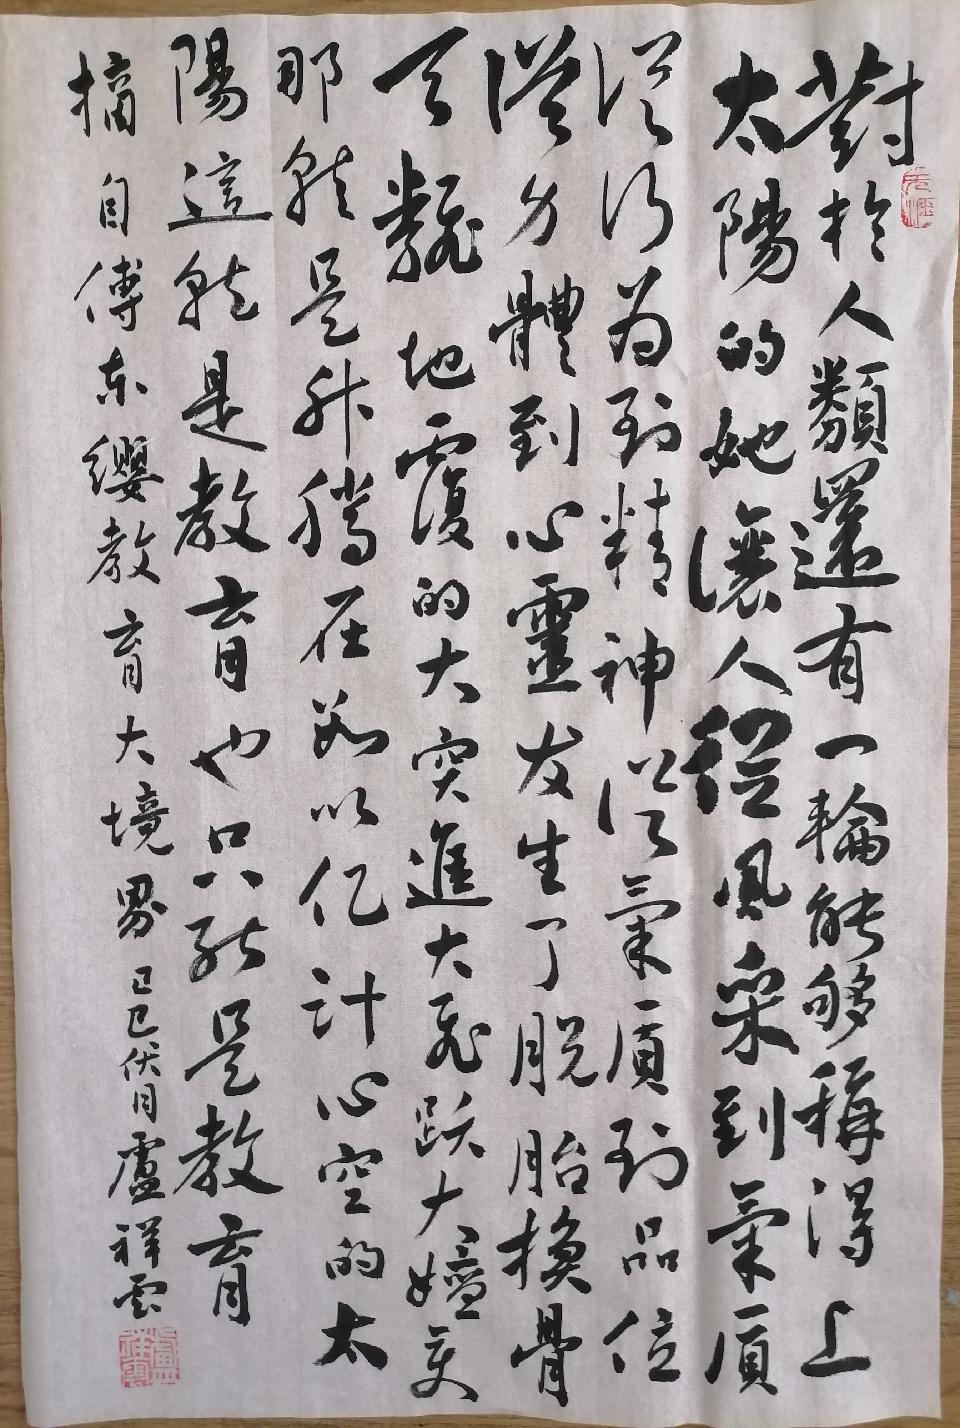 對於人類還有一輪能够稱得上
太陽的她讓人從風采到氣質
從行为到精神從氣質到品位
從身體到心靈发生了脱胎换骨
天翻地覆的大突進大飛跃大嬗变
那就是升腾在数以亿計心空的太
陽這就是教育也只能是教育
摘自傅东缨教育大境界 己巳伏月 盧祥雲
盧祥雲